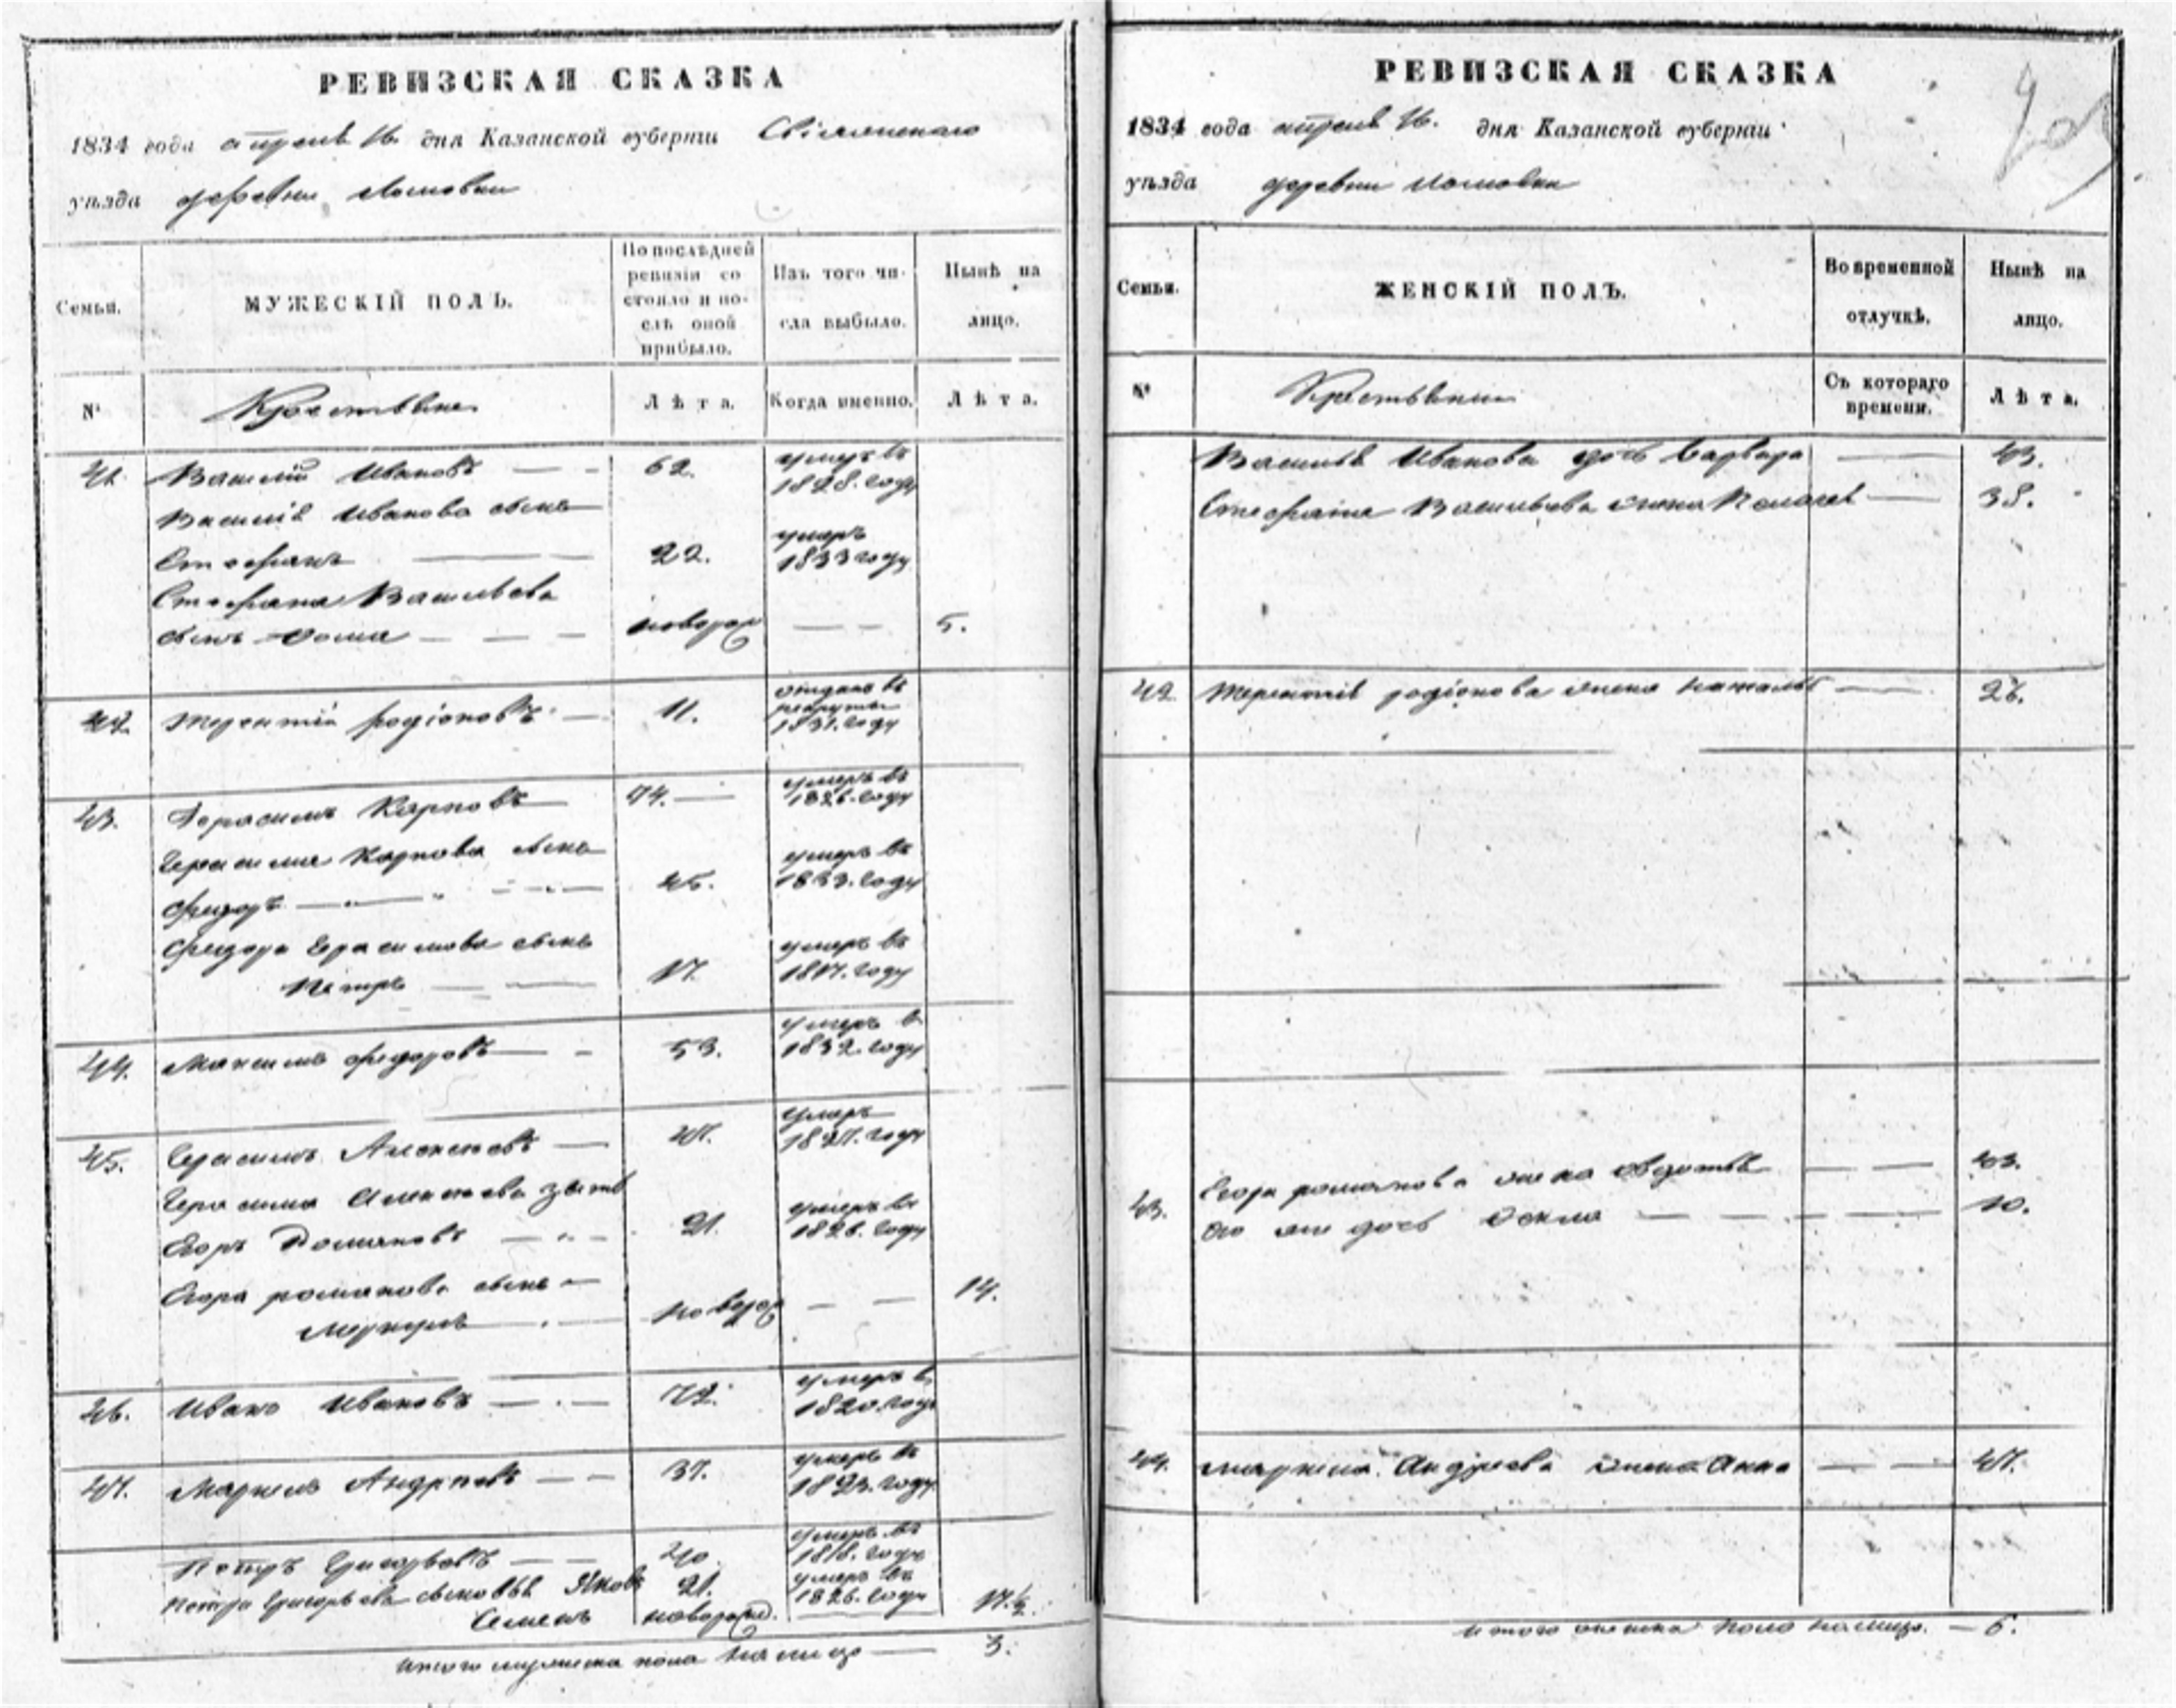 РЕВИЗСКАЯ СКАЗКА
1834 года апреля 16 дня Казанской губернiи
уѣзда деревни Ломовки
Семьи.
МУЖЕСКIЙ ПОЛЪ.
По послѣдней
ревизiи со-
стояло и по-
слѣ оной
прибыло.
Изъ того чи-
сла выбыло.
Нынѣ на
лицо.
№
Крестьяне
Лѣта.
Когда именно.
Лѣта.
41. Василiй Ивановъ 62. умеръ въ 1828. году
Василiя Иванова сынъ
Стефанъ 22. умеръ 1833 году
Стефана Васильева
сынъ Фома новорож 5.
42. Терентiй Родiоновъ 11. отданъ въ рекруты 1831. году
43. Герасимъ Карповъ 74. умеръ въ 1826. году
Герасима Карпова сынъ
Федоръ 45. умеръ въ 1833. году
Федора Герасимова сынъ
Петръ 17. умеръ въ 1817. году
44. Максимъ Федоровъ 53. умеръ в 1832. году
45. Герасимъ Алексеевъ 47. умеръ 1827. году
Герасима Алексеева зять
Егоръ Романовъ 21. умеръ въ 1826. году
Егора Романова сынъ
Меркулъ новорож 14.
46. Иванъ Ивановъ 72. умеръ в 1820. году
47. Маркелъ Андреевъ 37. умеръ въ 1823. году
Петръ Григорьевъ 40. умеръ въ 1818. году
Петра Григорьева сыновья Яковъ 21. умеръ въ 1826. году
Семенъ новорожд. 17.½
Итого мужеска пола на лицо 3.
РЕВИЗСКАЯ СКАЗКА
1834 года апреля 16. дня Казанской губернiи
уѣзда деревни Ломовки
Семьи.
ЖЕНСКIЙ ПОЛЪ.
Во временной
отлучкѣ.
Нынѣ на
лицо.
№
Крестьянки
Съ котораго
времени.
Лѣта.
Василья Иванова дочь Варвара 43.
Стефана Васильева жена Пелагея 38.
42. Терентiя Родiонова жена Наталья 26.
43. Егора Романова жена Авдотья 43.
Его же дочь Фекла 10.
44. Маркела Андреева жена Анна 47.
Итого женска пола на лицо. 6.